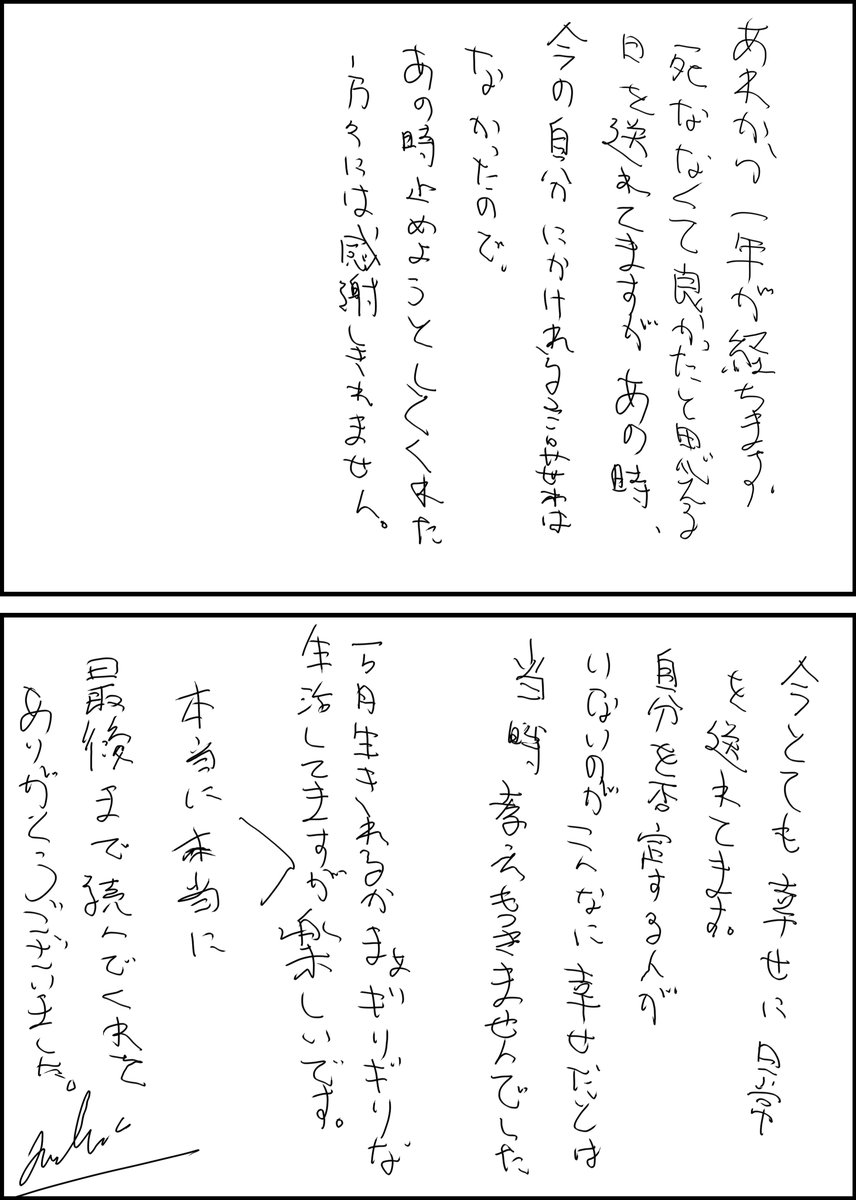 あれから一年が経ちます。
死ななくて良かったと思える
日を送れてますが あの時、
今の自分にかけれる言葉は
なかったので。
あの時止めようとしてくれた
方々には感謝しきれません。
今とても幸せに日常
を送れてます。
自分を否定する人が
いないのがこんなに幸せだとは
当時、考えもつきませんでした
一ヶ月生きれるかまぁギリギリな
生活してますが楽しいです。
本当に本当に
最後まで読んでくれて
ありがとうございました。